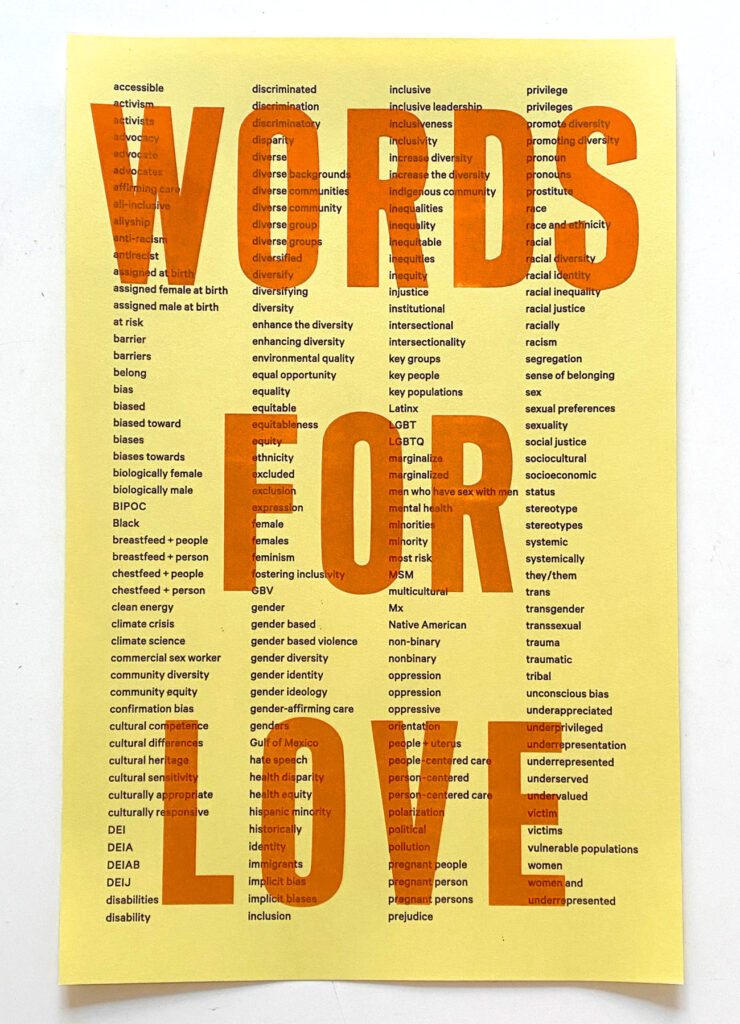 WORDS
FOR
LOVE
accessible
activism
activists
advocacy
advocate
advocates
affirming care
all-inclusive
allyship
anti-racism
antiracist
assigned at birth
assigned female at birth
assigned male at birth
at risk
barrier
barriers
belong
bias
biased
biased toward
biases
biases towards
biologically female
biologically male
BIPOC
Black
breastfeed + people
breastfeed + person
chestfeed + people
chestfeed + person
clean energy
climate crisis
climate science
commercial sex worker
community diversity
community equity
confirmation bias
cultural competence
cultural differences
cultural heritage
cultural sensitivity
culturally appropriate
culturally responsive
DEI
DEIA
DEIAB
DEIJ
disabilities
disability
discriminated
discrimination
discriminatory
disparity
diverse
diverse backgrounds
diverse communities
diverse community
diverse group
diverse groups
diversified
diversify
diversifying
diversity
enhance the diversity
enhancing diversity
environmental quality
equal opportunity
equality
equitable
equitableness
equity
ethnicity
excluded
exclusion
expression
female
females
feminism
fostering inclusivity
GBV
gender
gender based
gender based violence
gender diversity
gender identity
gender ideology
gender-affirming care
genders
Gulf of Mexico
hate speech
health disparity
health equity
hispanic minority
historically
identity
immigrants
implicit bias
implicit biases
inclusion
inclusive
inclusive leadership
inclusiveness
inclusivity
increase diversity
increase the diversity
indigenous community
inequalities
inequality
inequitable
inequities
inequity
injustice
institutional
intersectional
intersectionality
key groups
key people
key populations
Latinx
LGBT
LGBTQ
marginalize
marginalized
men who have sex with men
mental health
minorities
minority
most risk
MSM
multicultural
Mx
Native American
non-binary
nonbinary
oppression
oppression
oppressive
orientation
people + uterus
people-centered care
person-centered
person-centered care
polarization
political
pollution
pregnant people
pregnant person
pregnant persons
prejudice
privilege
privileges
promote diversity
promoting diversity
pronoun
pronouns
prostitute
race
race and ethnicity
racial
racial diversity
racial identity
racial inequality
racial justice
racially
racism
segregation
sense of belonging
sex
sexual preferences
sexuality
social justice
sociocultural
socioeconomic
status
stereotype
stereotypes
systemic
systemically
they/them
trans
transgender
transsexual
trauma
traumatic
tribal
unconscious bias
underappreciated
underprivileged
underrepresentation
underrepresented
underserved
undervalued
victim
victims
vulnerable populations
women
women and
underrepresented